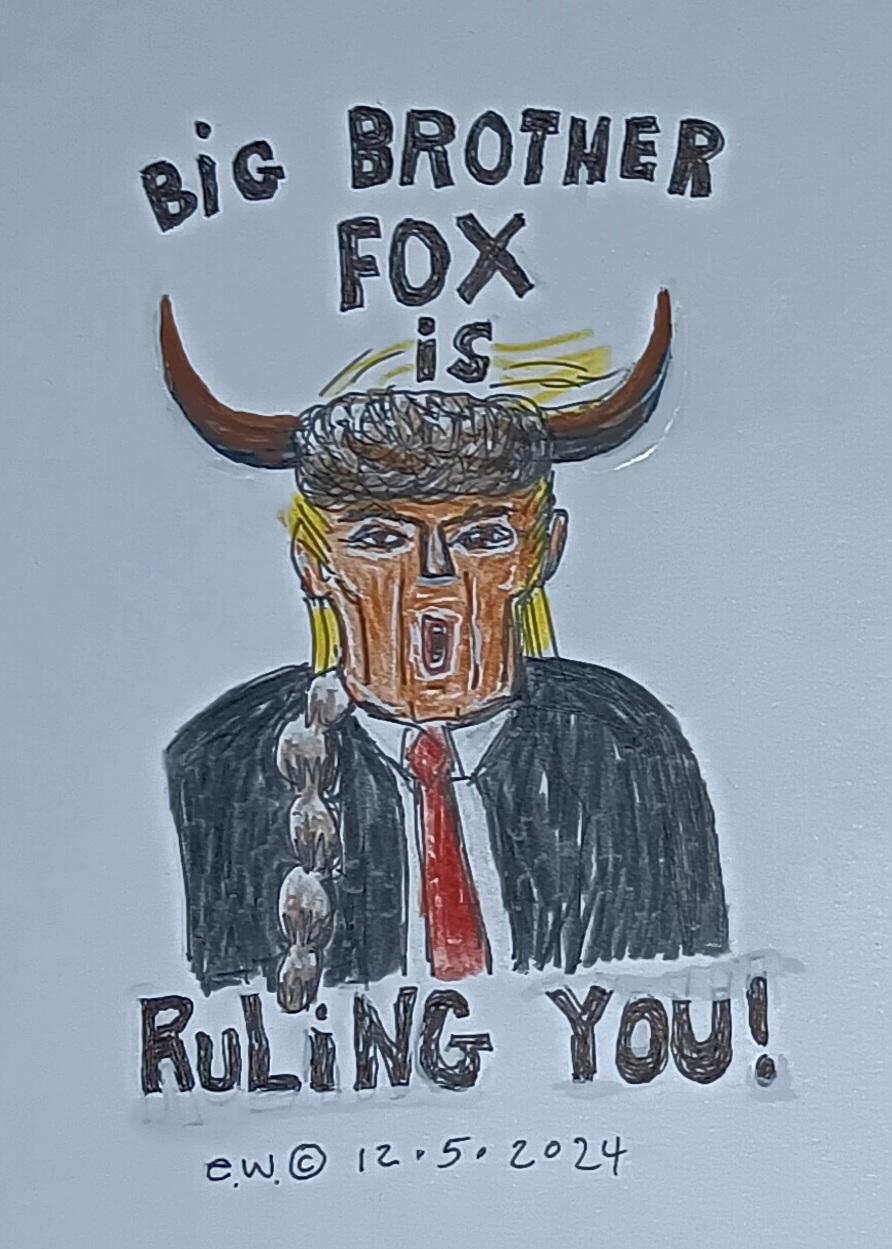 BiG BROTHER
FOX
is
RuLiNG YOU!
e.w.© 12.5.2024